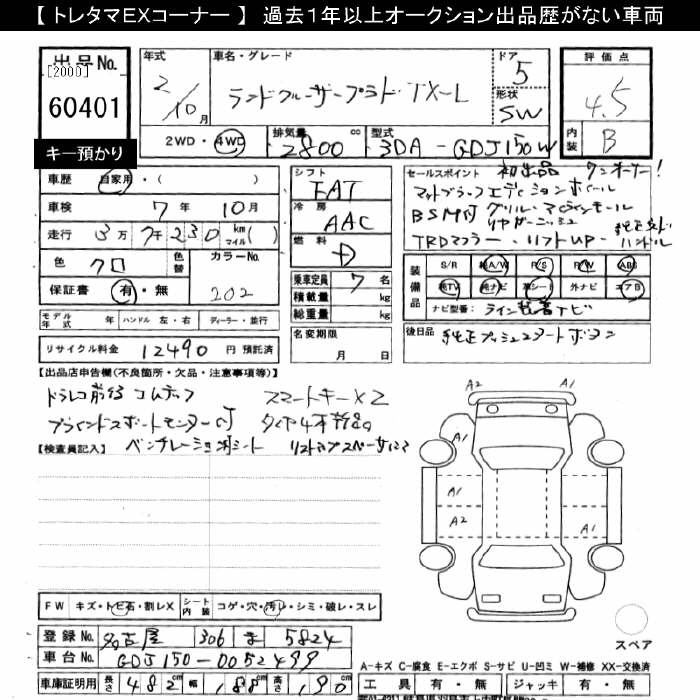 【 トレタマEXコーナー 】 過去1年以上オークション出品歴がない車両
出品No.
[2000]
60401
キー預かり
年式 2/10月
車名・グレード ランドクルーザープラド・TX-L
ドア 5
形状 SW
2WD・4WD
排気量 2800 cc
型式 3DA-GDJ150W
評価点 4.5
内装 B
車歴 自家用・( )
車検 7年 10月
走行 3万7千230 km マイル( )
色 クロ 色替 カラーNo. 202
保証書 有・無
モデル年式 年 ハンドル 左・右 ディーラー・並行
リサイクル料金 12490 円 預託済
シフト FAT
冷房 AAC
燃料 D
乗車定員 7 名
積載量 kg
総重量 kg
名変期限 月 日
セールスポイント 初出品 ワンオーナー!
マットブラックエディションホイール
BSM付 グリル・
リヤガーニッシュ
TRDマフラー・リフトUP・ハンドル
装備品
S/R 純A/W P/S P/W ABS
純TV 純ナビ 革シート 外ナビ エアB
ナビ型番:ライン装着ナビ
後日品 純正プッシュスタートボタン
【出品店申告欄(不良箇所・欠品・注意事項等)】
ドラレコ前後 コムテック スマートキーX2
ブラインドスポットモニター付 タイヤ4本
【検査員記入】 ベンチレーションシート リフトアップスペーサー
A2 A1
A1
A1 A1
A2
FW キズ・トビ石・割レX シート内装 コゲ・穴・汚レ・シミ・破レ・スレ
登録No. 名古屋 306 ま 5824
車台No. GDJ150-0052499
車庫証明用 長さ 482cm 幅 188cm 高さ 190cm
スペア
A-キズ C-腐食 E-エクボ S-サビ U-凹ミ W-補修 XX-交換済
工具 有・無 ジャッキ 有・無